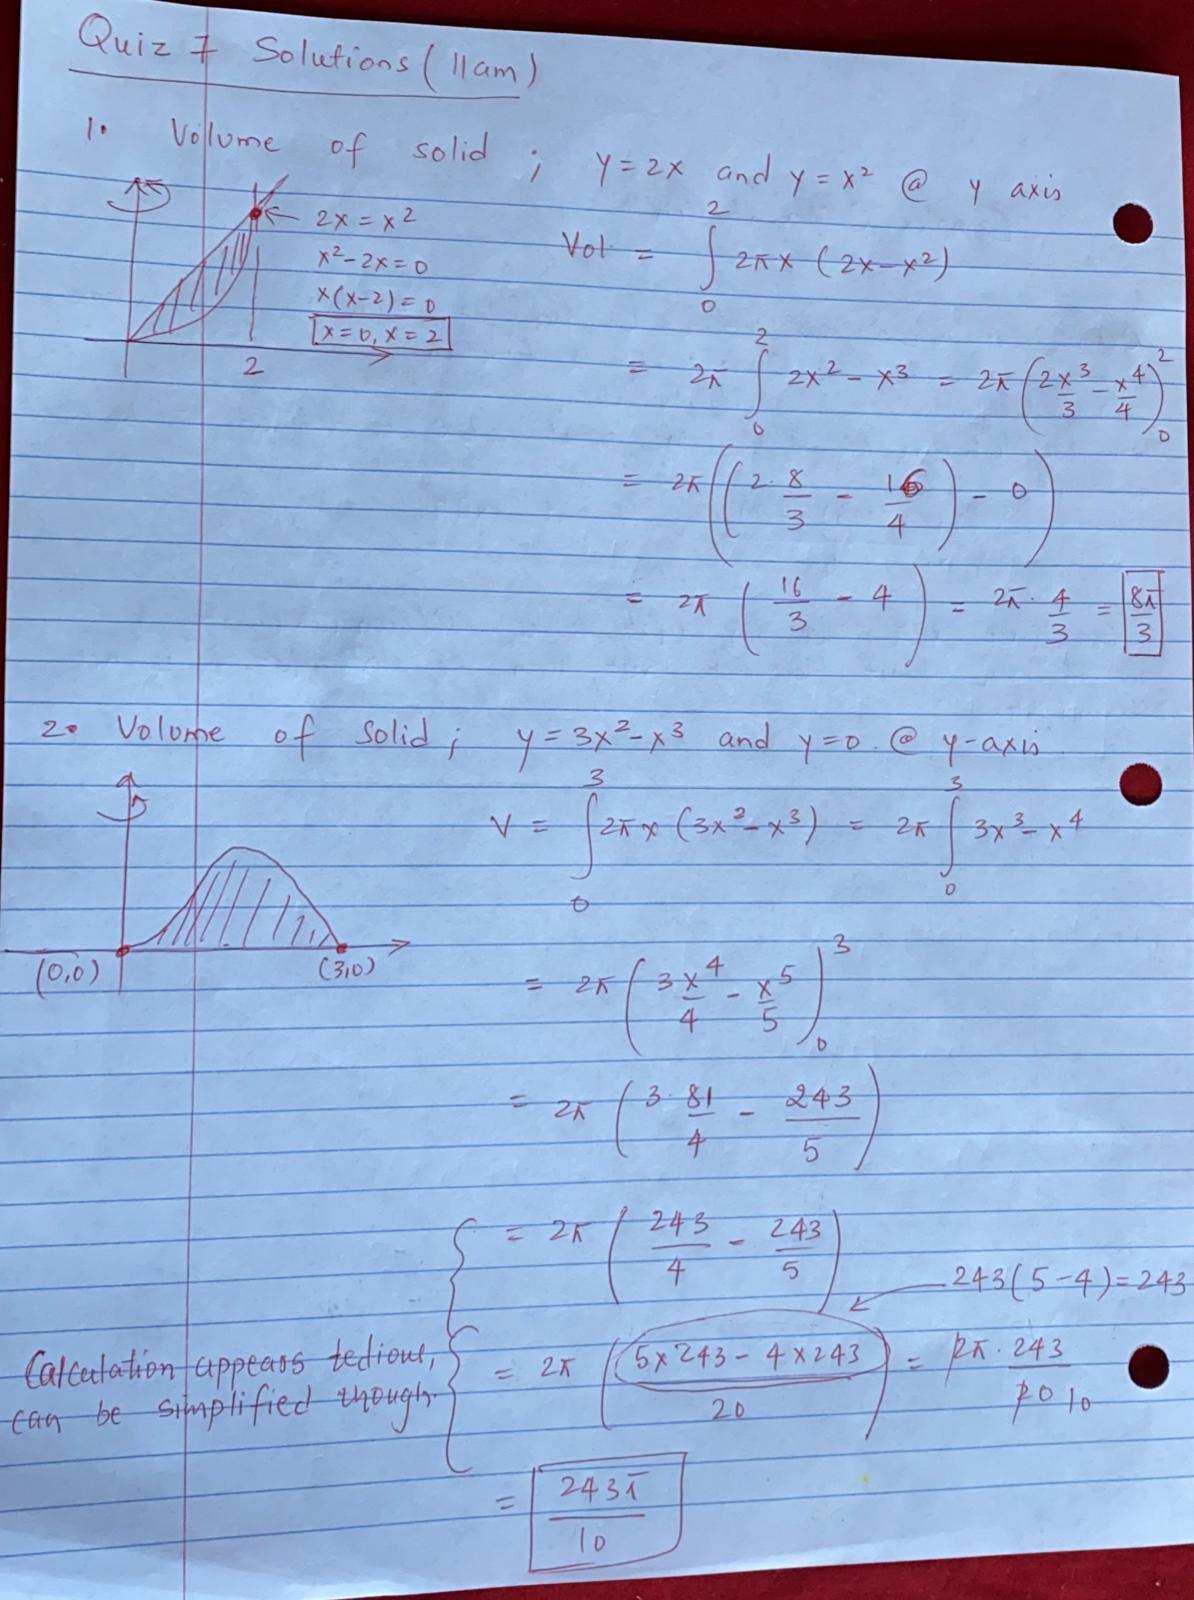 Quiz 7 Solutions (11am)
1. Volume of solid ; y = 2x and y = x² @ y axis
2x = x²
x² - 2x = 0
x(x-2) = 0
x = 0, x = 2
2
Vol = ∫₀² 2πx (2x - x²)
= 2π ∫₀² 2x² - x³ = 2π (2x³/3 - x⁴/4)₀²
= 2π ((2·8/3 - 16/4) - 0)
= 2π (16/3 - 4) = 2π · 4/3 = 8π/3
2. Volume of solid ; y = 3x² - x³ and y = 0 . @ y-axis
(0,0)
(3,0)
V = ∫₀³ 2πx (3x² - x³) = 2π ∫₀³ 3x³ - x⁴
= 2π (3x⁴/4 - x⁵/5)₀³
= 2π (3·81/4 - 243/5)
= 2π (243/4 - 243/5)
243(5-4) = 243
Calculation appears tedious,
can be simplified though.
= 2π ((5x243 - 4x243)/20) = 2π · 243/20 10
= 243π/10